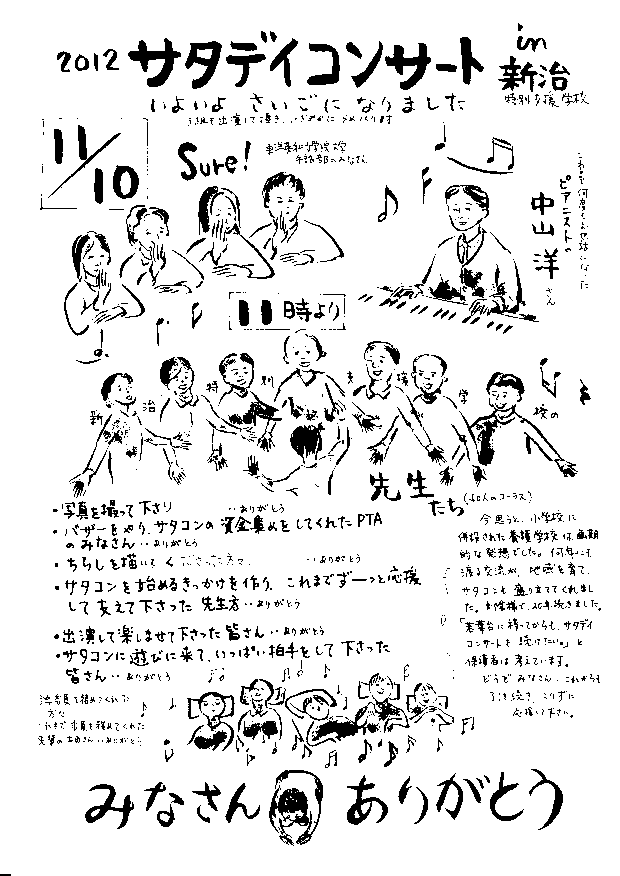 2012 サタデイコンサート in 新治
特別支援学校
いよいよ さいごに なりました
11/10
Sure!
手話部のみなさん
ピアニストの
中山 洋 さん
11時より
新治特別支援学校の
先生たち (60人のコーラス)
・写真を撮って下さり ‥ありがとう
・バザーをやり、サタコンの資金集めをしてくれたPTA
のみなさん‥ありがとう
・ちらしを描いてくださった方々、 ‥ありがとう
・サタコンを始めるきっかけを作り、これまでずーっと応援
して支えて下さった 先生方‥ありがとう
・出演して楽しませて下さった皆さん‥ありがとう
・サタコンに遊びに来て、いっぱい拍手をして下さった
皆さん‥ありがとう
今思うと、小学校に
併設された養護学校は画期
的な発想でした。何年にも
渡る交流が、地域を育て、
サタコンも盛り立ててくれまし
た。お陰様で、20年続きました。
「若葉台に移ってからも、サタデイ
コンサートを続けたい。」と
保護者は考えています。
どうぞみなさん、これからも
引き続き、こりずに
応援して下さい。
みなさん ありがとう